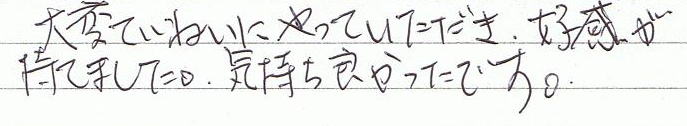 大変ていねいにやっていただき、好感が
持てました。気持ち良かったです。